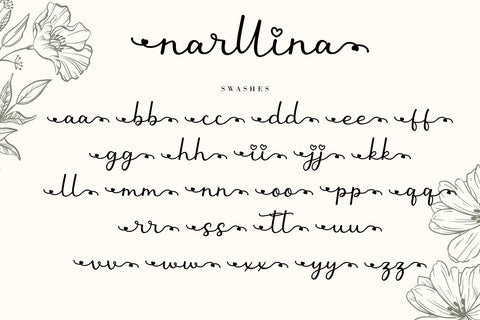 narllina
SWASHES
aa bb cc dd ee ff
gg hh ii jj kk
ll mm nn oo pp qq
rr ss tt uu
vv ww xx yy zz